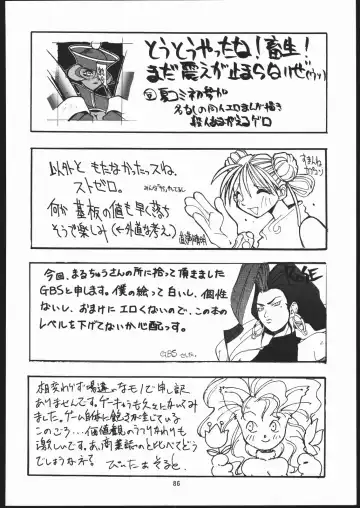 とうとうやったね!畜生!
まだ震えが止まらないぜ
夏コミ初参加
以外ともたなかったっスね、
ストゼロ。
何か基板の値も早く落ち
そうで楽しみ(←外道な考え)
今回、まるちゅうさんの所に拾って頂きました
GBSと申します。僕の絵って白いし、個性
ないし、おまけにエロくないので、この本の
レベルを下げてないか心配っす。
GBS
ROSE
相変わらず場違いなモノで申し訳
ありませんです。ゲーキャラも久々にかいてみ
ました。ゲーム自体に飽きが生じている
このごろ…価値観のうつりかわりも
激しいです。あ、商業誌のと比べてどう
でしょうなネ?
びいたあそると
86